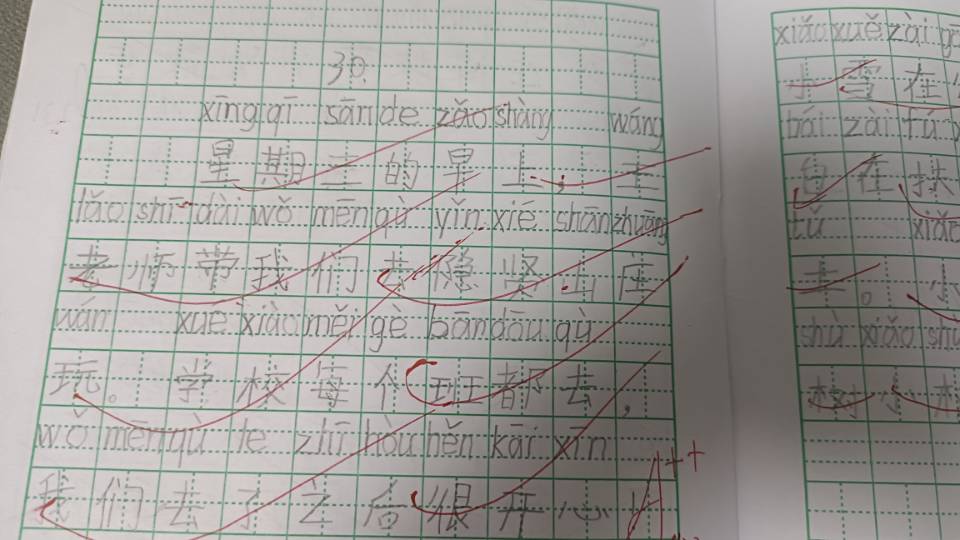 30.
xīng qī sān de zǎo shàng wáng
星期三的早上,王
lǎo shī dài wǒ mēn qù yǐn xié shān zhuāng
老师带我们去隐贤山庄
wán xué xiào měi gè bān dōu qù
玩。学校每个班都去,
wǒ mēn qù le zhī hòu hěn kāi xīn
我们去了之后很开心
A++
xiǎo xuě zài
小雪在
bái zài fú
白在扶
tǔ xiǎo
土。小
shù xiǎo shù
树小树